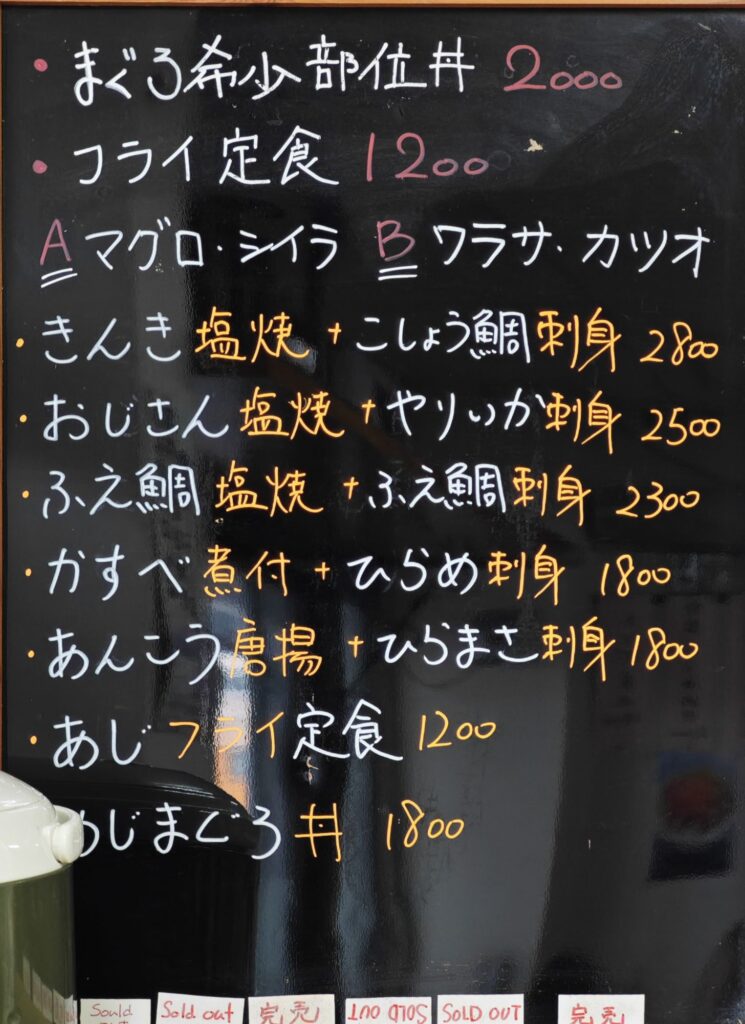 ・まぐろ希少部位丼 2000
・フライ定食 1200
A マグロ・シイラ B ワラサ・カツオ
・きんき塩焼+こしょう鯛刺身 2800
・おじさん塩焼+やりいか刺身 2500
・ふえ鯛塩焼+ふえ鯛刺身 2300
・かすべ煮付+ひらめ刺身 1800
・あんこう唐揚+ひらまさ刺身 1800
・あじフライ定食 1200
めじまぐろ丼 1800
Sould Sold out 完売 SOLD OUT SOLD OUT 完売